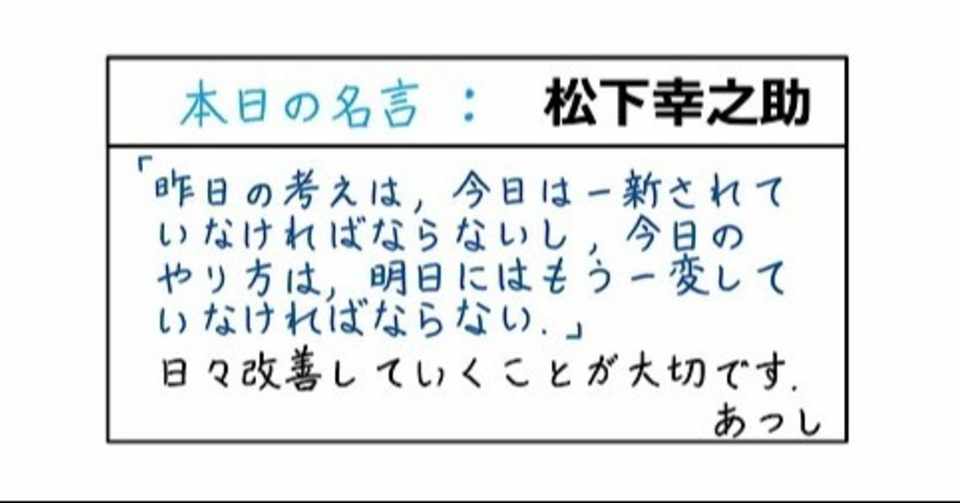 本日の名言： 松下幸之助
「昨日の考えは, 今日は一新されて
いなければならないし, 今日の
やり方は, 明日にはもう一変して
いなければならない.」
日々改善していくことが大切です.
あつし